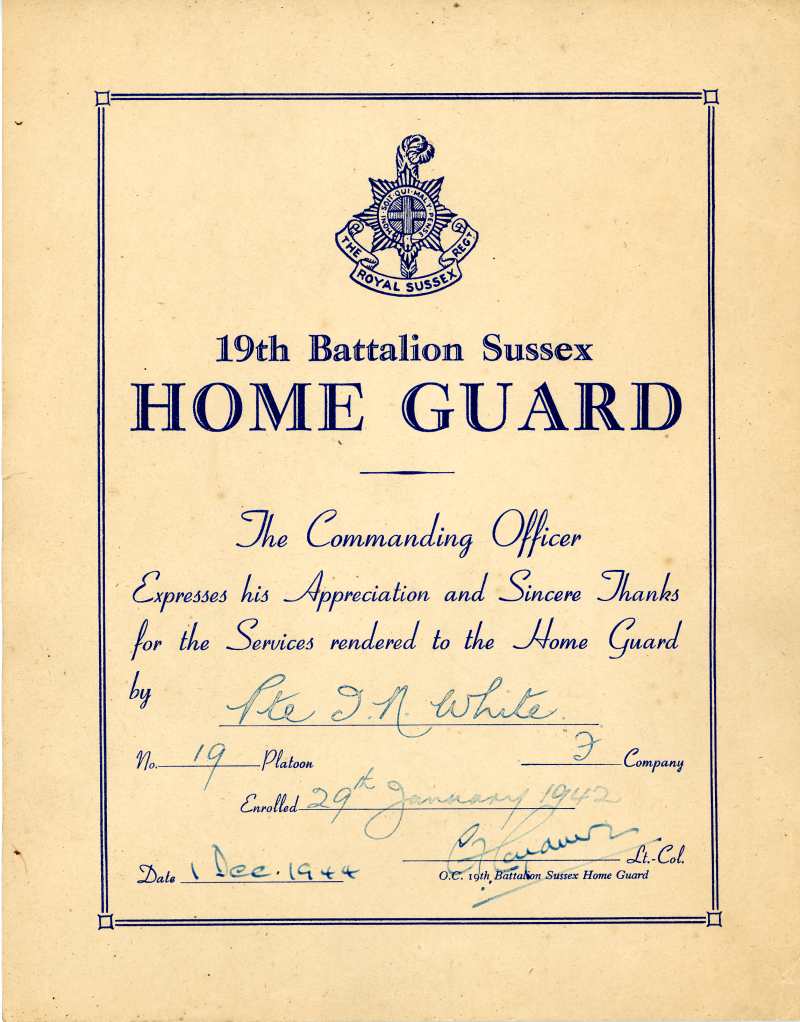 HONI SOIT QUI MAL Y PENSE
THE ROYAL SUSSEX REGT
19th Battalion Sussex
HOME GUARD
The Commanding Officer
Expresses his Appreciation and Sincere Thanks
for the Services rendered to the Home Guard
by Pte I. N. White.
No. 19 Platoon F Company
Enrolled 29th January 1942
Lt.-Col.
Date 1 Dec. 1944 O.C. 19th Battalion Sussex Home Guard